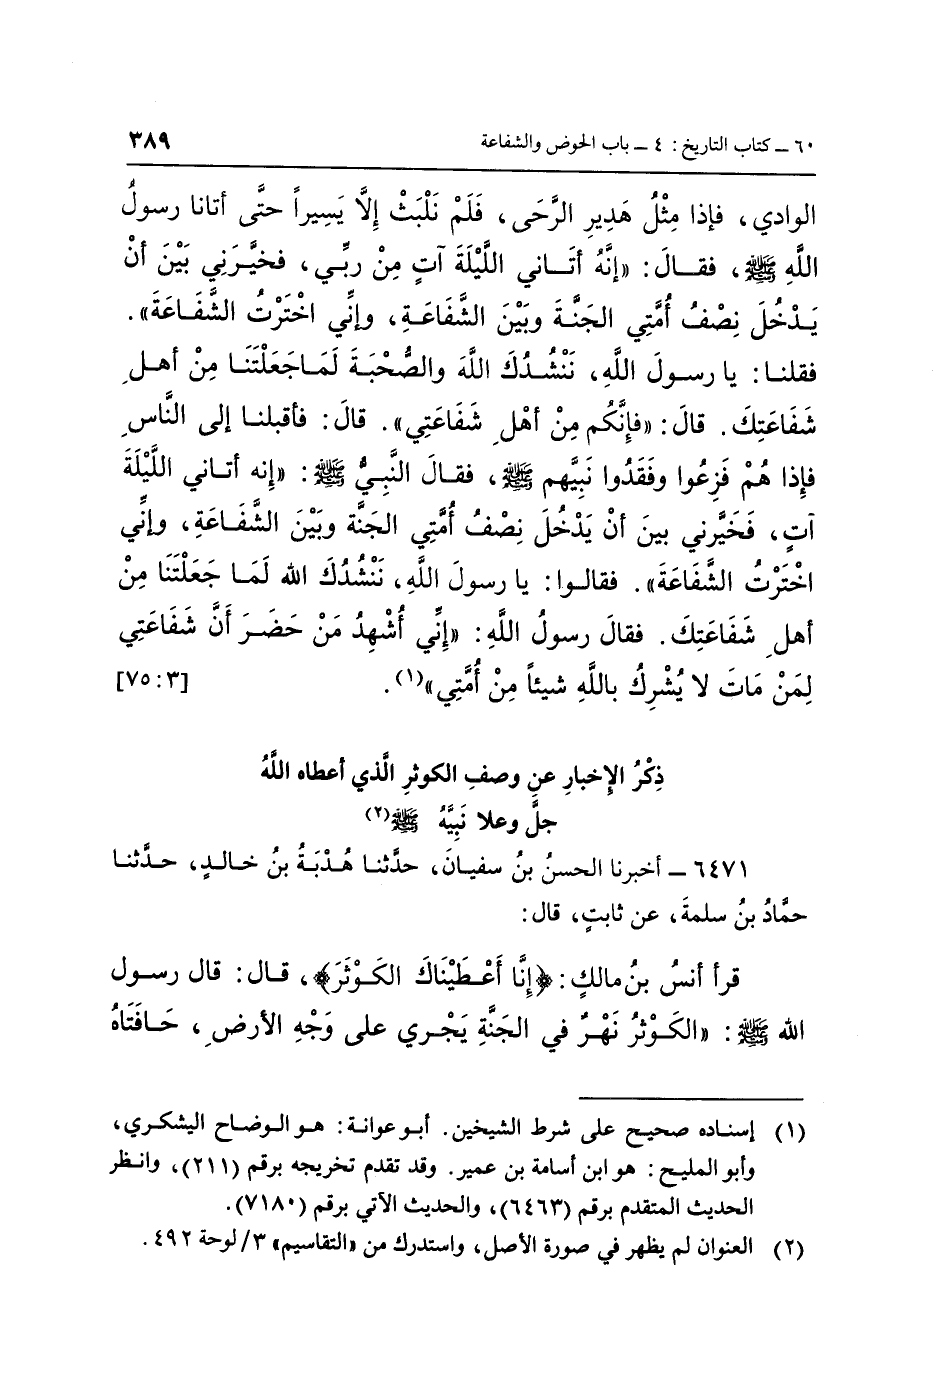 ٦٠ ـ كتاب التاريخ : ٤ ـ باب الحوض والشفاعة ٣٨٩
الوادي، فإذا مِثْلُ هَدِيرِ الرَّحَى، فَلَمْ نَلْبَثْ إِلَّا يَسِيراً حتَّى أتانا رسولُ
اللَّهِ ﷺ، فقـالَ: «إنَّهُ أتَـاني اللَّيْلَةَ آتٍ مِنْ ربِّـي، فخيَّرَنِي بَيْنَ أنْ
يَـدْخُلَ نِصْفُ أُمَّتِي الجَنَّـةَ وبَيْنَ الشَّفَاعَـةِ، وإنِّي اخْتَرْتُ الشَّفَـاعَةَ».
فقلنـا: يا رسـولَ اللَّهِ، نَنْشُـدُكَ اللَّهَ والصُّحْبَـةَ لَمَـا جَعَلْتَنَـا مِنْ أهـلِ
شَفَاعَتِكَ. قالَ: «فإنَّكُم مِنْ أهْلِ شَفَاعَتِي». قالَ: فأقبلنـا إلى النَّاسِ
فإذا هُمْ فَزِعُوا وفَقَدُوا نَبِيَّهم ﷺ، فقـالَ النَّبِيُّ ﷺ: «إنه أتـاني اللَّيْلَةَ
آتٍ، فَخَيَّرني بينَ أنْ يَدْخُلَ نِصْفُ أُمَّتِي الجَنَّة وبَيْنَ الشَّفَـاعَةِ، وإنِّي
اخْتَرْتُ الشَّفَاعَةَ». فقالـوا: يا رسولَ اللَّهِ، نَنْشُدُكَ الله لَمَـا جَعَلْتَنَا مِنْ
أهلِ شَفَاعَتِكَ. فقالَ رسولُ اللَّهِ: «إنِّي أُشْهِدُ مَنْ حَضَـرَ أَنَّ شَفَاعَتِي
لِمَنْ مَاتَ لا يُشْرِكُ باللَّهِ شيئاً مِنْ أُمَّتِي»(١). [٧٥:٣]
ذِكْرُ الإِخبارِ عنِ وصفِ الكوثرِ الَّذي أعطاه اللَّهُ
جلَّ وعلا نَبِيَّهُ ﷺ(٢)
٦٤٧١ ـ أخبرنا الحسنُ بنُ سفيـان، حدَّثنـا هُـدْبَـةُ بنُ خـالـدٍ، حـدَّثنـا
حمَّادُ بنُ سلمةَ، عن ثابتٍ، قال:
قرأ أنسُ بنُ مالكٍ: ﴿إِنَّا أَعْـطَيْنَاكَ الكَـوْثَرَ﴾، قـال: قال رسـول
الله ﷺ: «الكَـوْثَرُ نَهْـرٌ في الجَنَّةِ يَجْـرِي على وَجْهِ الأرضِ، حَـافَتَاهُ
(١) إسنـاده صحيـح على شرط الشيخين. أبـو عوانـة: هـو الـوضاح اليشكـري،
وأبو المليـح: هو ابن أسامة بن عمير. وقد تقدم تخريجه برقم (٢١١)، وانـظر
الحديث المتقدم برقم (٦٤٦٣)، والحديث الآتي برقم (٧١٨٠).
(٢) العنوان لم يظهر في صورة الأصل، واستدرك من «التقاسيم» ٣/لوحة ٤٩٢.